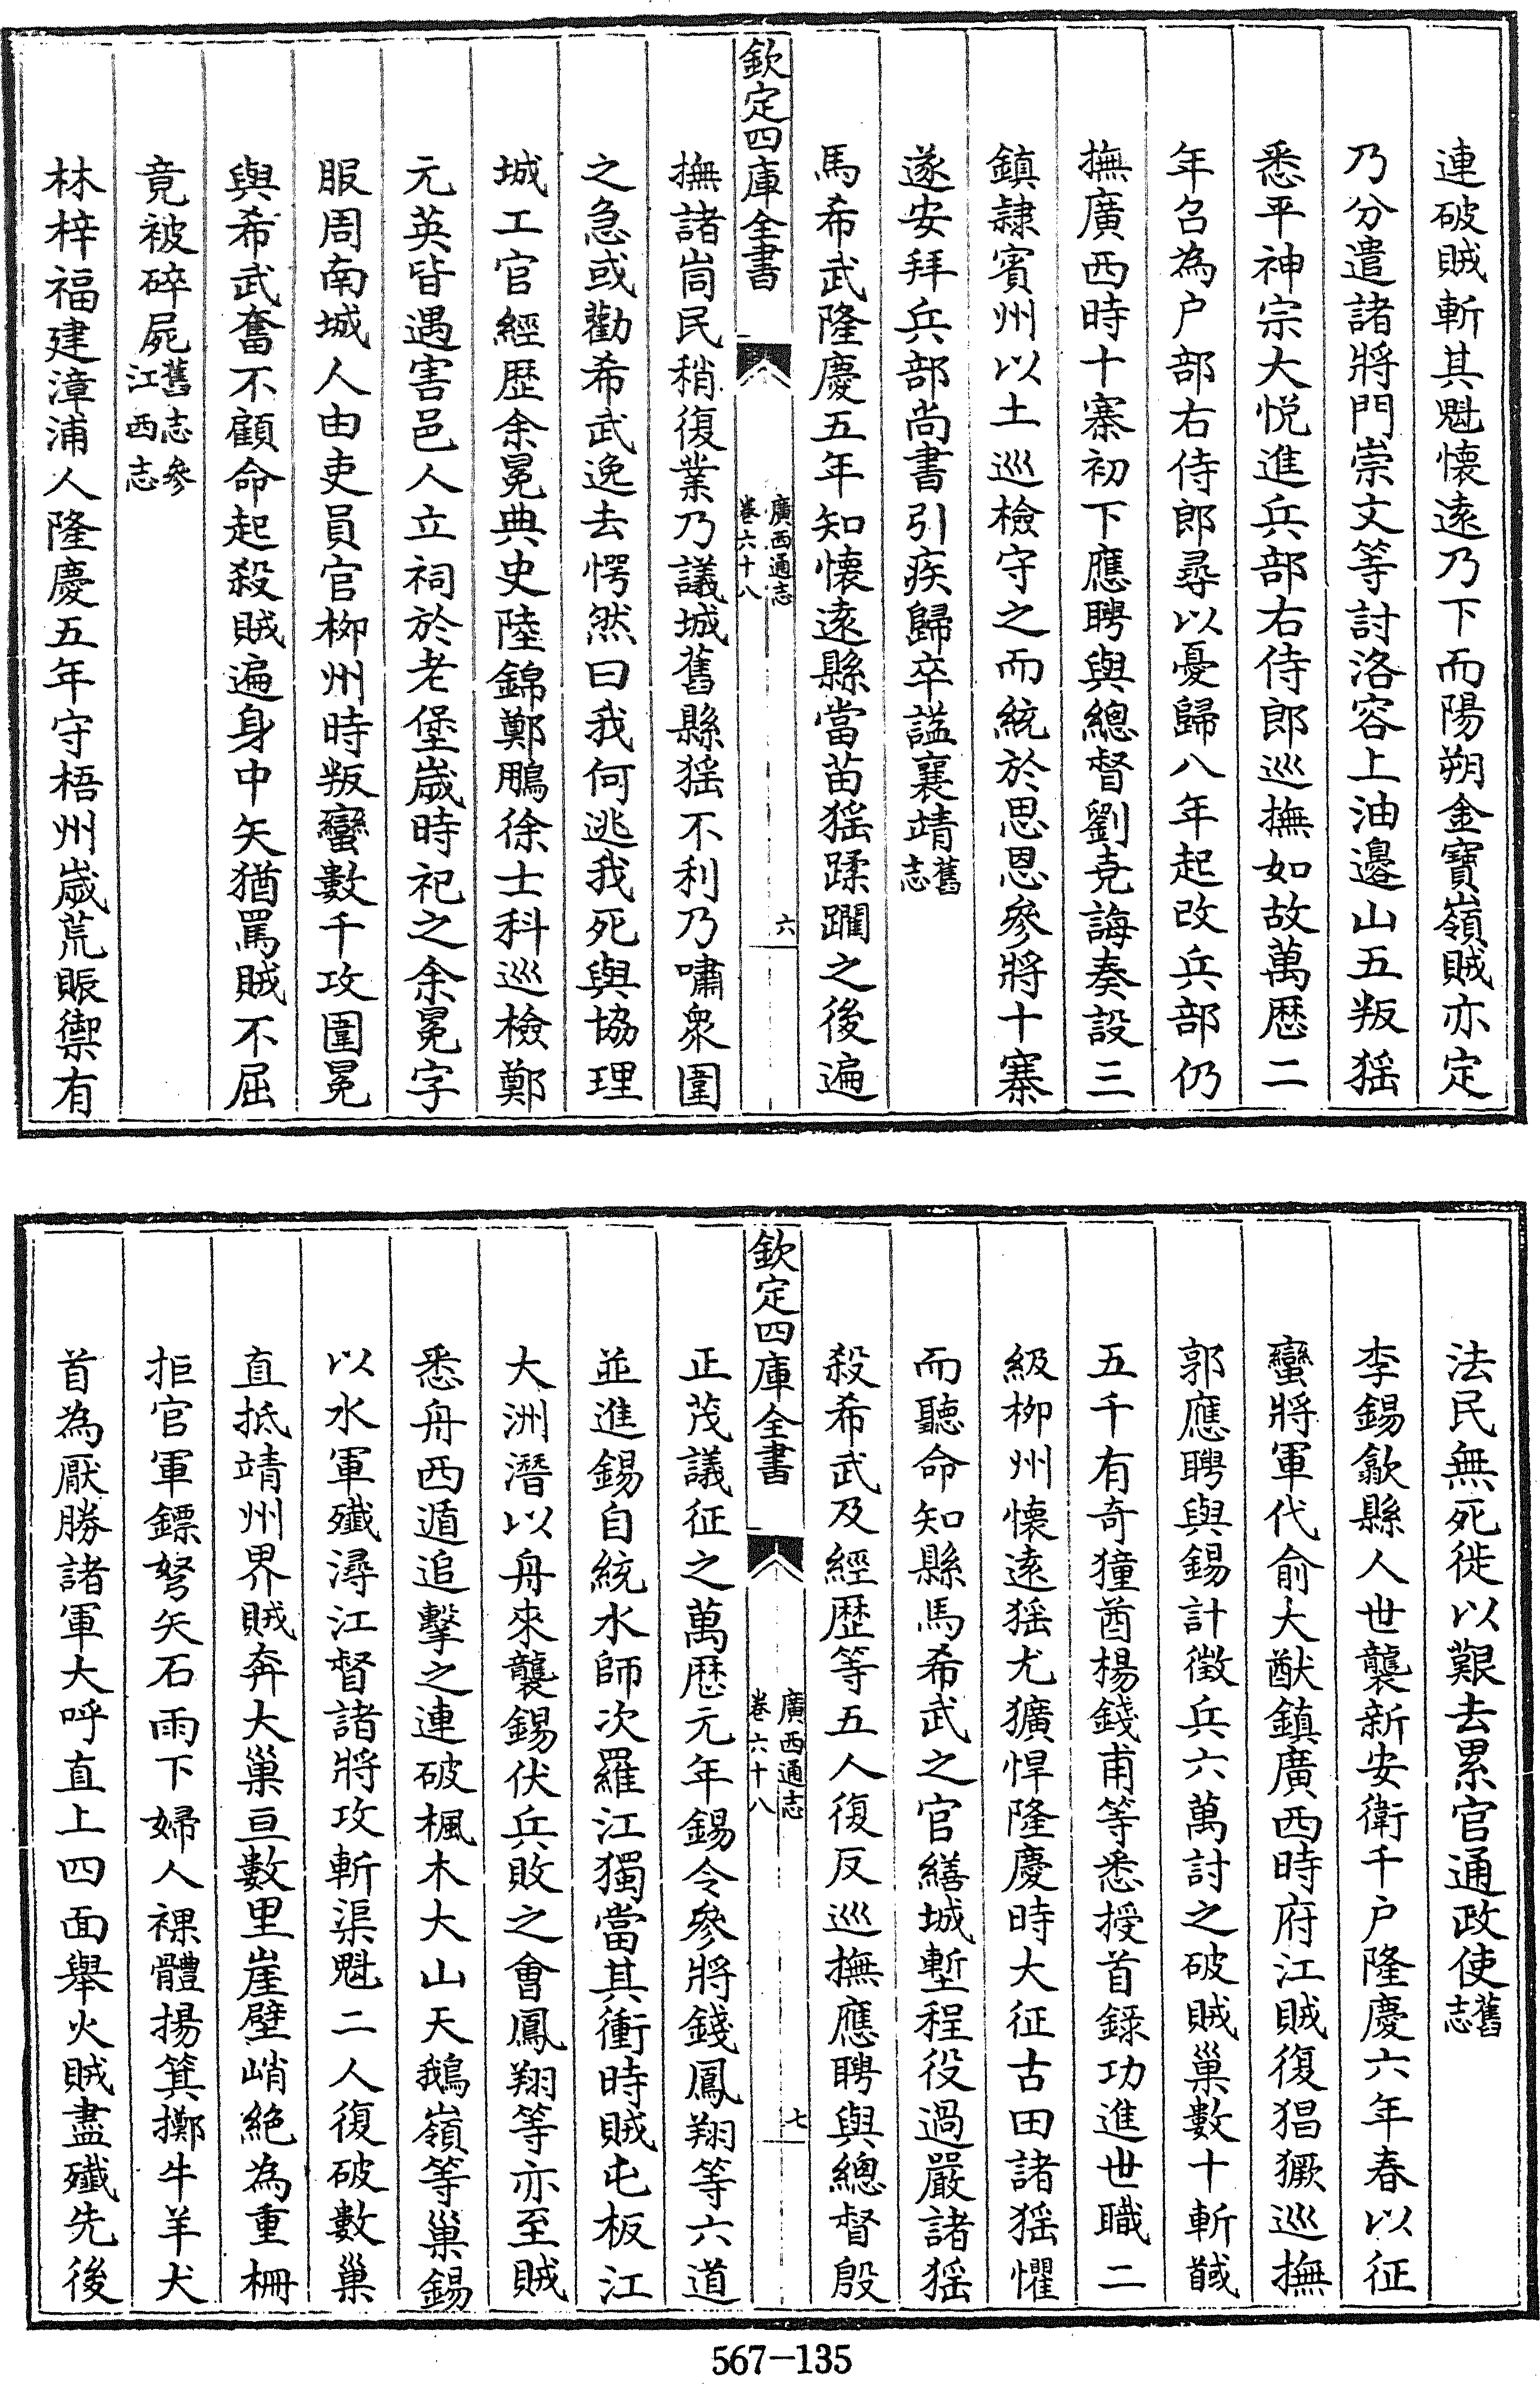 連破賊斬其魁懷遠乃下而陽朔金寶嶺賊亦定
乃分遣諸將門崇文等討洛容上油邊山五叛猺
悉平神宗大悅進兵部右侍郎巡撫如故萬歷二
年召為户部右侍郎尋以憂歸八年起改兵部仍
撫廣西時十寨初下應聘與總督劉堯誨奏設三
鎮隷賓州以土巡檢守之而統於思恩參將十寨
遂安拜兵部尚書引疾歸卒諡襄靖舊志
馬希武隆慶五年知懷遠縣當苗猺蹂躙之後遍
欽定四庫全書
廣西通志
卷六十八
六
撫諸峝民稍復業乃議城舊縣猺不利乃嘯衆圍
之急或勸希武逸去愕然曰我何逃我死與協理
城工官經歷余冕典史陸錦鄭鵰徐士科巡檢鄭
元英皆遇害邑人立祠於老堡歳時祀之余冕字
服周南城人由吏員官柳州時叛蠻數千攻圍冕
與希武奮不顧命起殺賊遍身中矢猶罵賊不屈
竟被碎屍舊志參江西志
林梓福建漳浦人隆慶五年守梧州歳荒賑禦有
法民無死徙以艱去累官通政使舊志
李錫歙縣人世襲新安衛千户隆慶六年春以征
蠻將軍代俞大猷鎮廣西時府江賊復猖獗巡撫
郭應聘與錫計徵兵六萬討之破賊巢數十斬馘
五千有奇獞酋楊錢甫等悉授首錄功進世職二
級柳州懷遠猺尤獷悍隆慶時大征古田諸猺懼
而聽命知縣馬希武之官繕城塹程役過嚴諸猺
殺希武及經歷等五人復反巡撫應聘與總督殷
欽定四庫全書
廣西通志
卷六十八
七
正茂議征之萬歷元年錫令參將錢鳳翔等六道
並進錫自統水師次羅江獨當其衝時賊屯板江
大洲潛以舟來襲錫伏兵敗之會鳳翔等亦至賊
悉舟西遁追擊之連破楓木大山天鵝嶺等巢錫
以水軍殲潯江督諸將攻斬渠魁二人復破數巢
直抵靖州界賊奔大巢亘數里崖壁峭絶為重柵
拒官軍鏢弩矢石雨下婦人裸體揚箕擲牛羊犬
首為厭勝諸軍大呼直上四面舉火賊盡殲先後
567-135